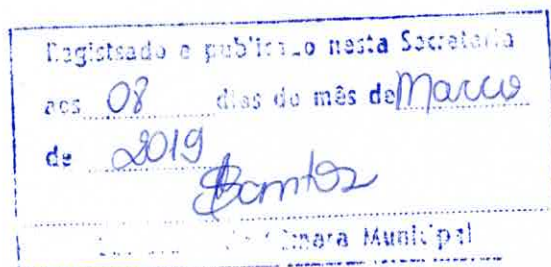 Registrado e publicado nesta Secretaria
aos 08 dias do mês de Março
de 2019
Santos
Câmara Municipal